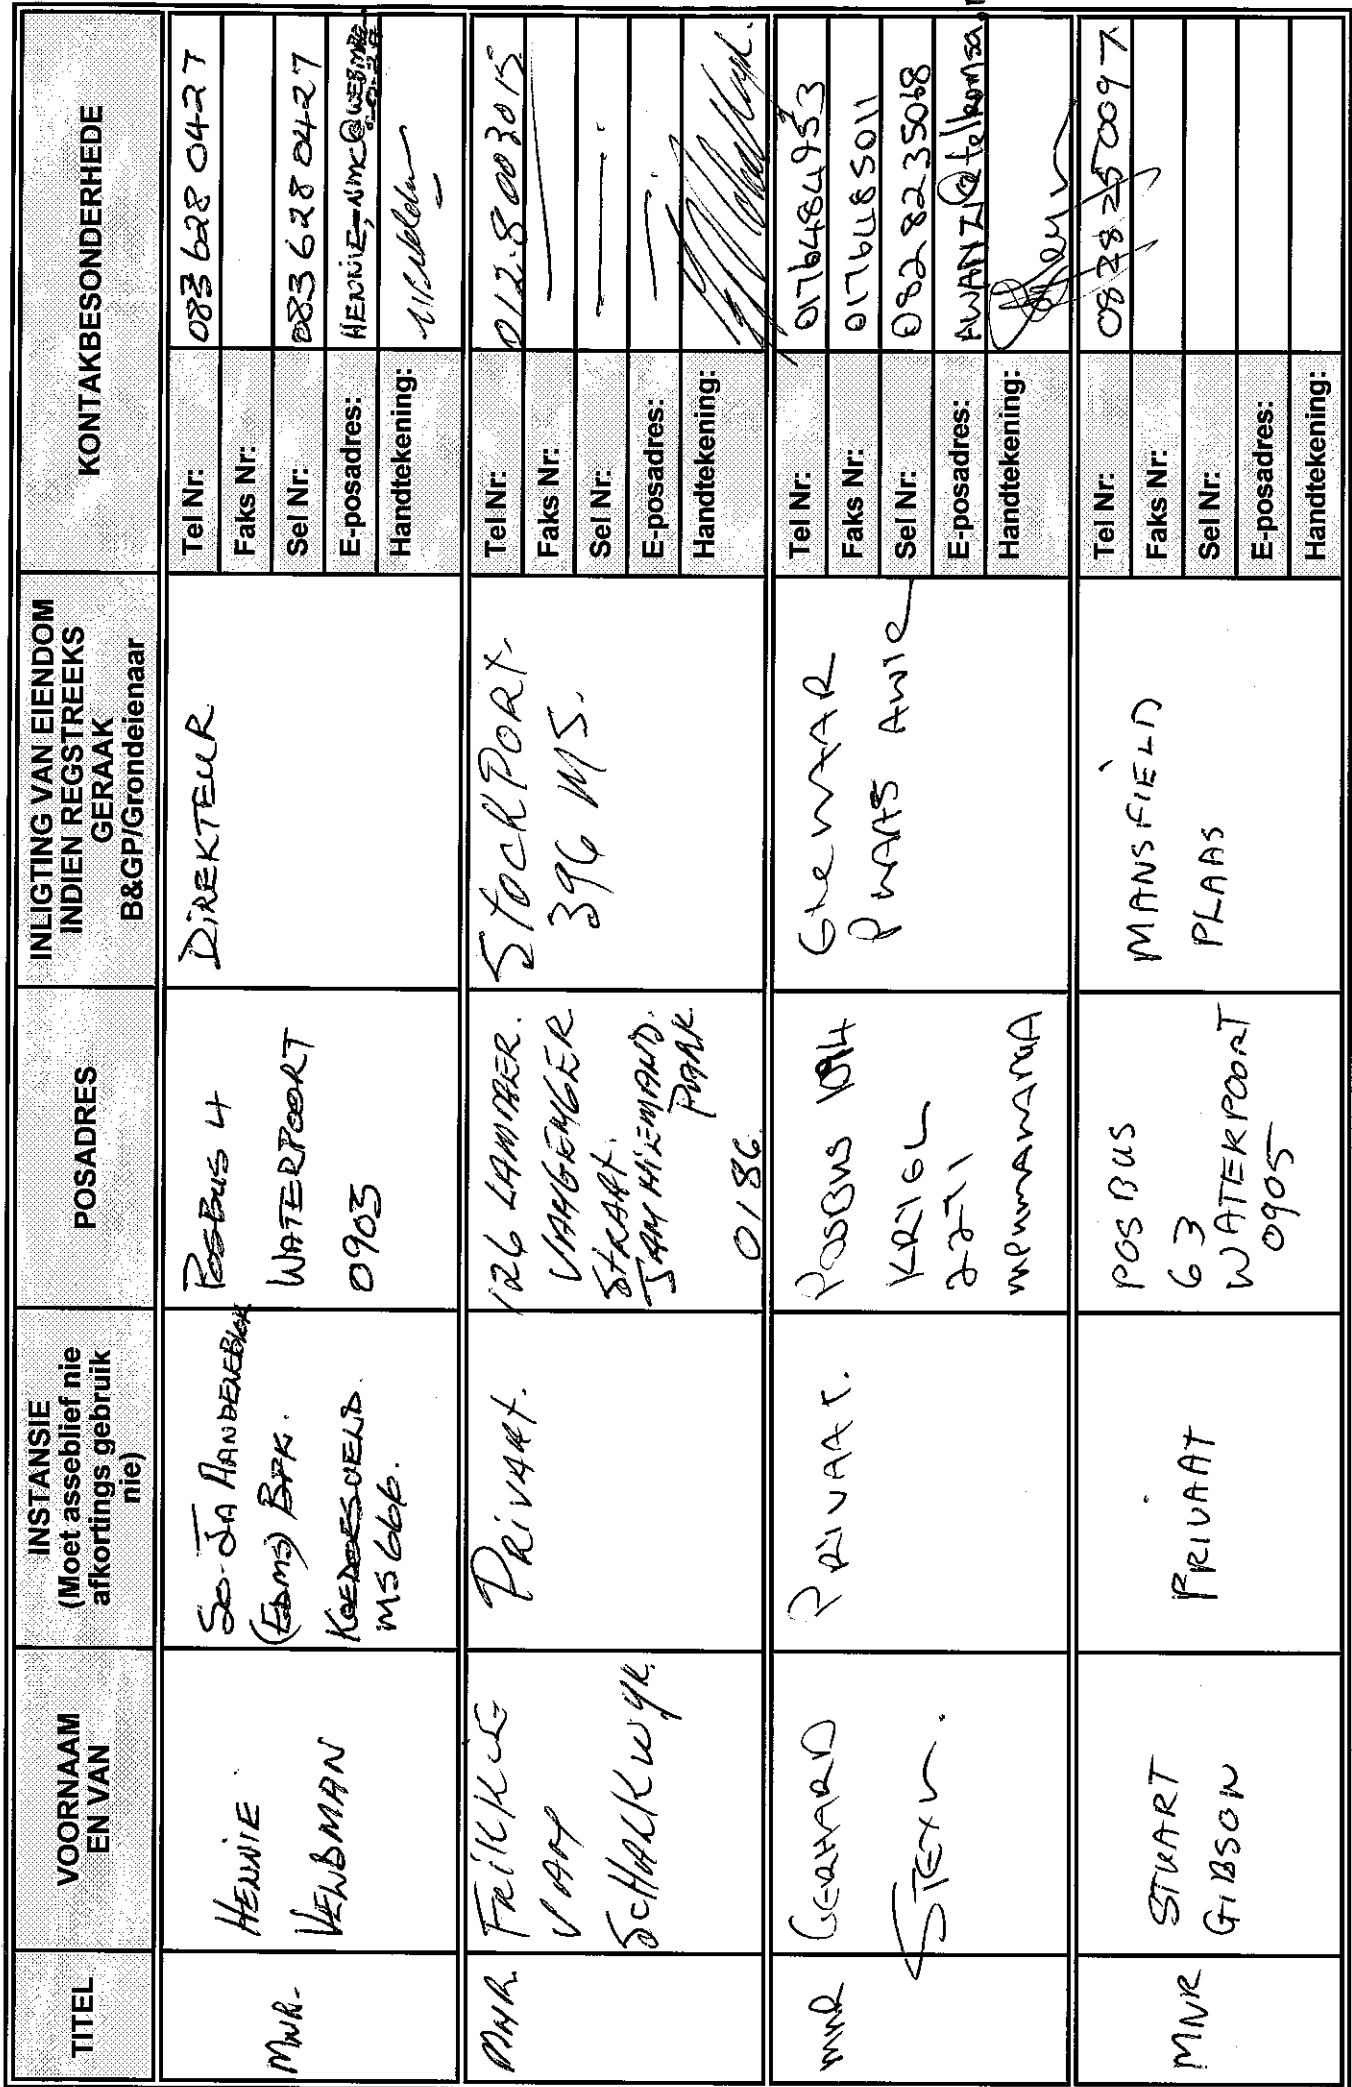 TITEL
VOORNAAM
EN VAN
INSTANSIE
(Moet asseblief nie
afkortings gebruik
nie)
POSADRES
INLIGTING VAN EIENDOM
INDIEN REGSTREEKS
GERAAK
B&GP/Grondeienaar
KONTAKBESONDERHEDE
MNR.
HENNIE
VELDMAN
SO-JA AANDENEBLOK
(EDMS) BPK.
KOEDOESVELD.
MS 666.
POSBUS 4
WATERPOORT
0905
DIREKTEUR
Tel Nr: 083 628 0427
Faks Nr:
Sel Nr: 083 628 0427
E-posadres:
Handtekening:
MNR.
FRIKKIE
VAN
SCHALKWYK.
PRIVAAT.
126
STRAAT.
PARK
0186.
STOCKPORT.
396 MS.
Tel Nr: 012-8003015
Faks Nr:
Sel Nr:
E-posadres:
Handtekening:
MNR
GERHARD
STEYN.
PRIVAAT.
POSBUS
KRIEL
2271
MPUMALANGA
Tel Nr: 0176484953
Faks Nr: 0176485011
Sel Nr: 0828235068
E-posadres:
Handtekening:
MNR
STUART
GIBSON
PRIVAAT
POSBUS
63
WATERPOORT
0905
MANSFIELD
PLAAS
Tel Nr: 0828250097
Faks Nr:
Sel Nr:
E-posadres:
Handtekening: